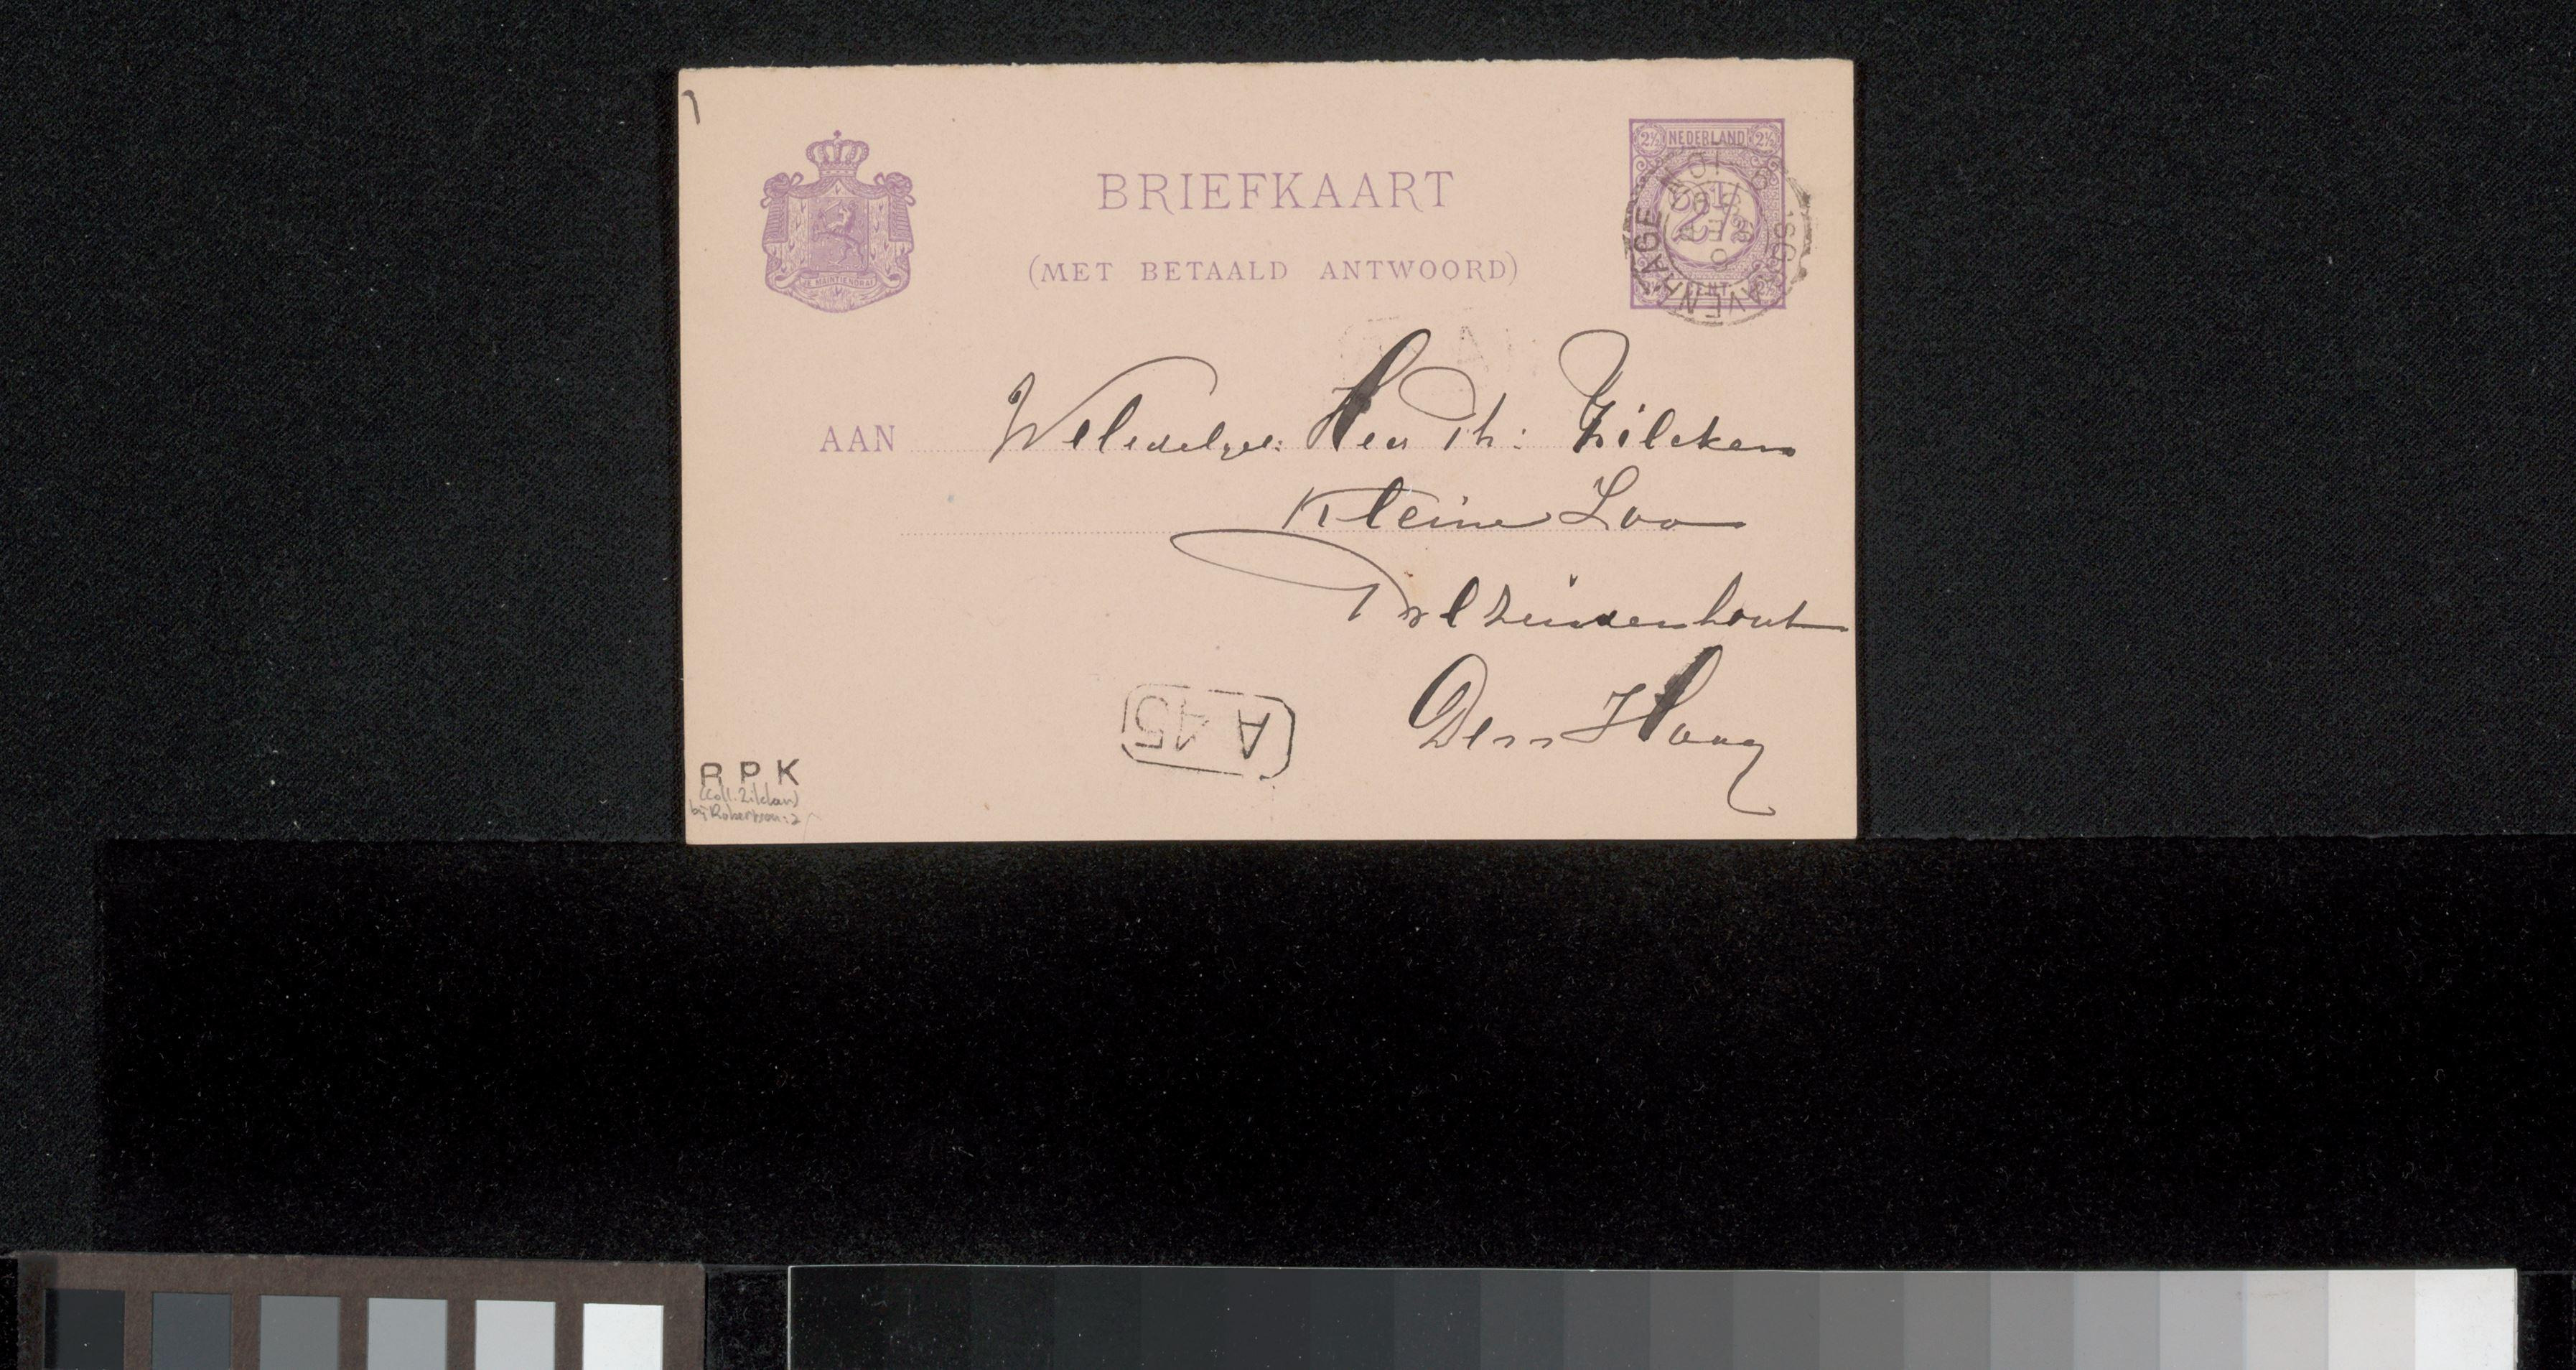 BRIEFKAART
(MET BETAALD ANTWOORD)
JE MAINTIENDRAI
2½ NEDERLAND 2½
2½
CENT
'SGRAVENHAGE
AAN Weledelgeb: Heer Th: Zilcken
Kleine Loo
Bezuidenhout
Den Haag
A 45
R P K
(Coll. Zilcken)
bij Robertson: 2